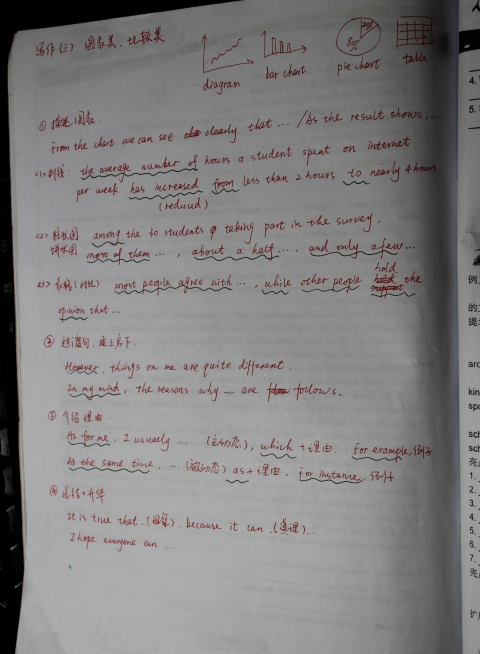 写作(三) 图表类、比较类
diagram
bar chart
20%
80%
pie chart
table
① 描述图表.
From the chart we can see clearly that ... / As the result shows, ...
<1> 折线: the average number of hours a student spent on internet
per week has increased from less than 2 hours to nearly 4 hours.
(reduced)
<2> 柱状图 among the 30 students taking part in the survey,
饼状图 most of them ..., about a half ..., and only a few ...
<3> 表格(对比) most people agree with ..., while other people hold the
opinion that ...
② 过渡句, 承上启下.
However, things on me are quite different.
In my mind, the reasons why ... are follows.
③ 介绍理由.
As for me, I usually ... (主动态), which + 理由. For example, 例子
At the same time, ... (被动态) as + 理由. For instance, 例子
④ 总结+升华
It is true that (现象), because it can (道理) ...
I hope everyone can ...
4.
5.
例
的
提